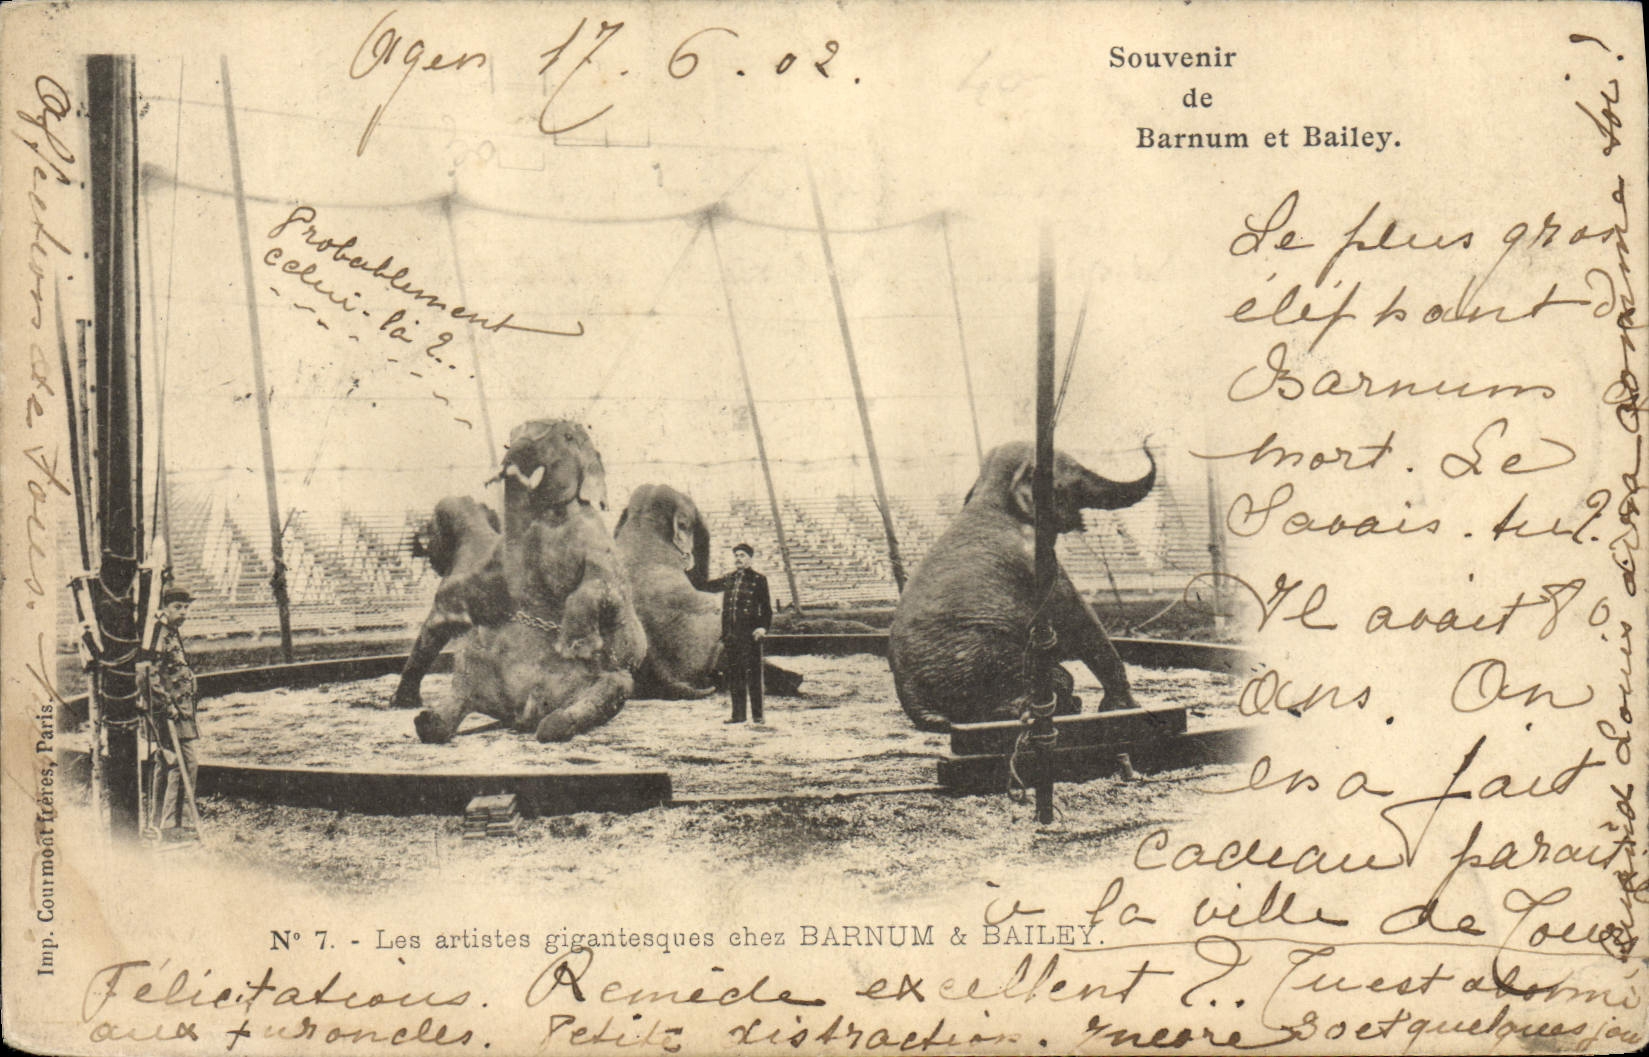 Agen 17. 6. 02.
Souvenir
de
Barnum et Bailey.
Probablement
celui-là ?..
Le plus gros
éléphant de
Barnum
mort. Le
Savais-tu ?
Il avait 80
ans. On
en a fait
cadeau paraît-il
à la ville de Tours
Nº 7. - Les artistes gigantesques chez BARNUM & BAILEY.
Félicitations. Remède excellent ?.. Tu est abonné
aux furoncles. Petite distraction. Encore 30 et quelques jours
quand Louis dira comme toi !
Affections de tous.
Imp. Courmont frères, Paris.